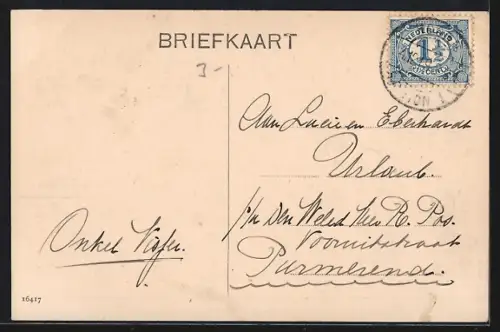 BRIEFKAART
3-
NEDERLAND
1½
CENT
Aan Lucie en Eberhardt
Urlaub.
p/a Den Weled Heer R. Pos.
Voorstraat
Purmerend.
Onkel
16417